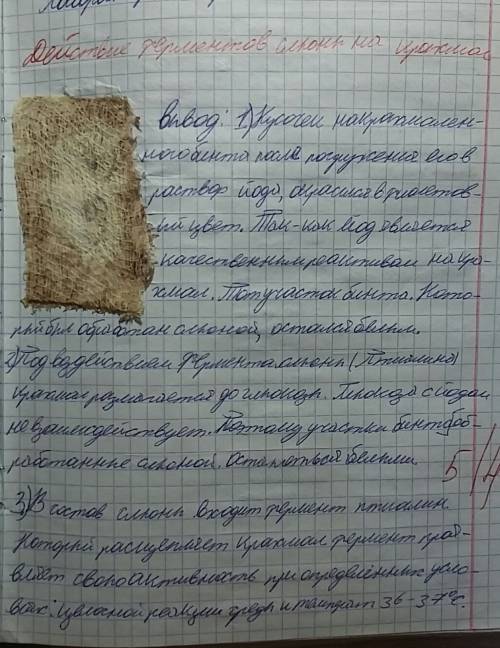 Действие ферментов слюны на крахмал
Вывод: 1) Кусочек накрахмален-
ного бинта после погружения его в
раствор йода, окрасился в фиолетов-
ый цвет. Так-как йод является
качественным реактивом на кра-
хмал. Тот участок бинта. Кото-
рый был обработан слюной, остался белым.
2) Под воздействием фермента слюны (Птиалина)
крахмал разлагается до глюкозы. Глюкоза с йодом
не взаимодействует. Поэтому участки бинта об-
работанные слюной. Остаються белыми.
5/4
3) В состав слюны входит фермент птиалин.
Который расщепляет крахмал фермент проя-
вляет свою активность при определённых усло-
виях: щелочной реакции среды и температ 36-37°С.